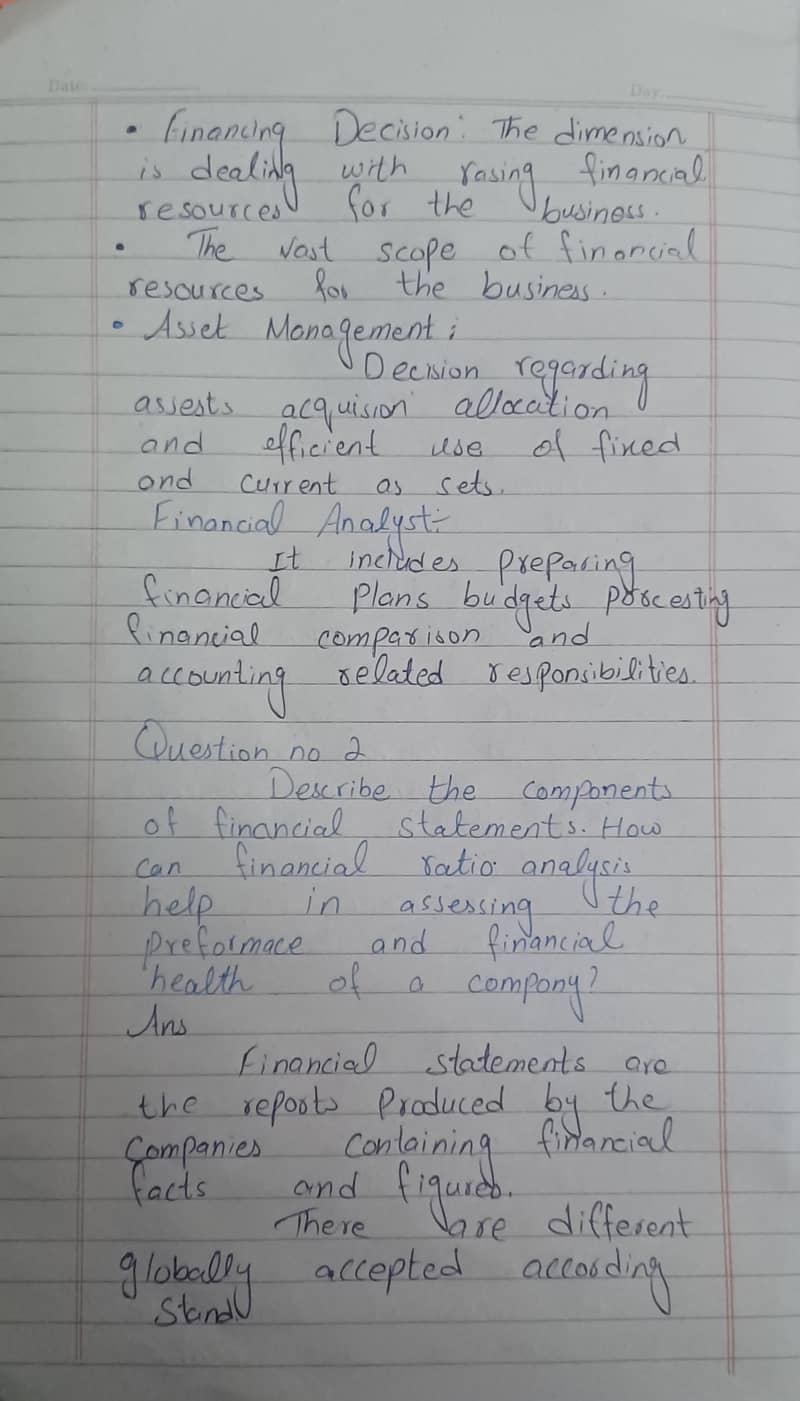 Date
Day
• Financing Decision: The dimension
is dealing with rasing financial
resources for the business.
• The vast scope of financial
resources for the business.
• Asset Management:
Decision regarding
assests acquision allocation
and efficient use of fixed
and current as sets.
Financial Analyst:-
It includes preparing
financial Plans budgets porcesting
financial comparison and
accounting related responsibilities.
Question no 2
Describe the components
of financial statements. How
can financial ratio analysis
help in assessing the
preformace and financial
health of a company?
Ans
Financial statements are
the reports Produced by the
Companies containing financial
facts and figures.
There are different
globally accepted according
Stand